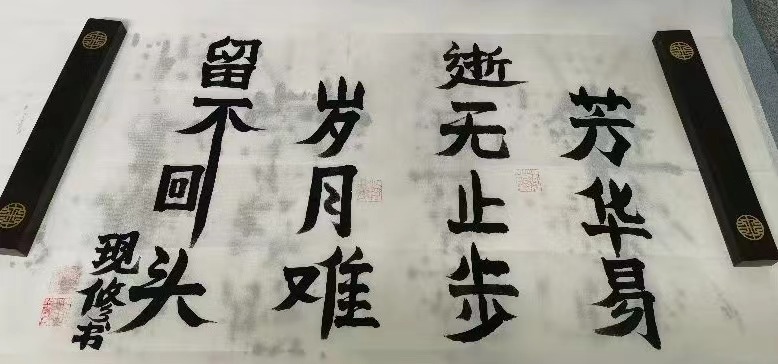 芳华易
逝无止步
岁月难
留不回头
现修书